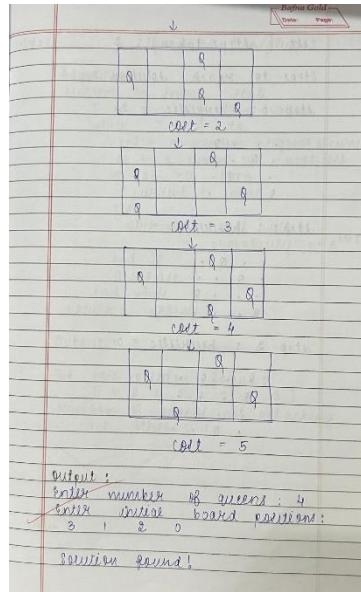 Bafna Gold
Date: Page:
↓
Q
Q
Q
Q
cost = 2
↓
Q
Q
Q
Q
cost = 3
↓
Q
Q
Q
Q
cost = 4
↓
Q
Q
Q
Q
cost = 5
Output :
Enter number of queens : 4
Enter initial board positions :
3 1 2 0
Solution found!